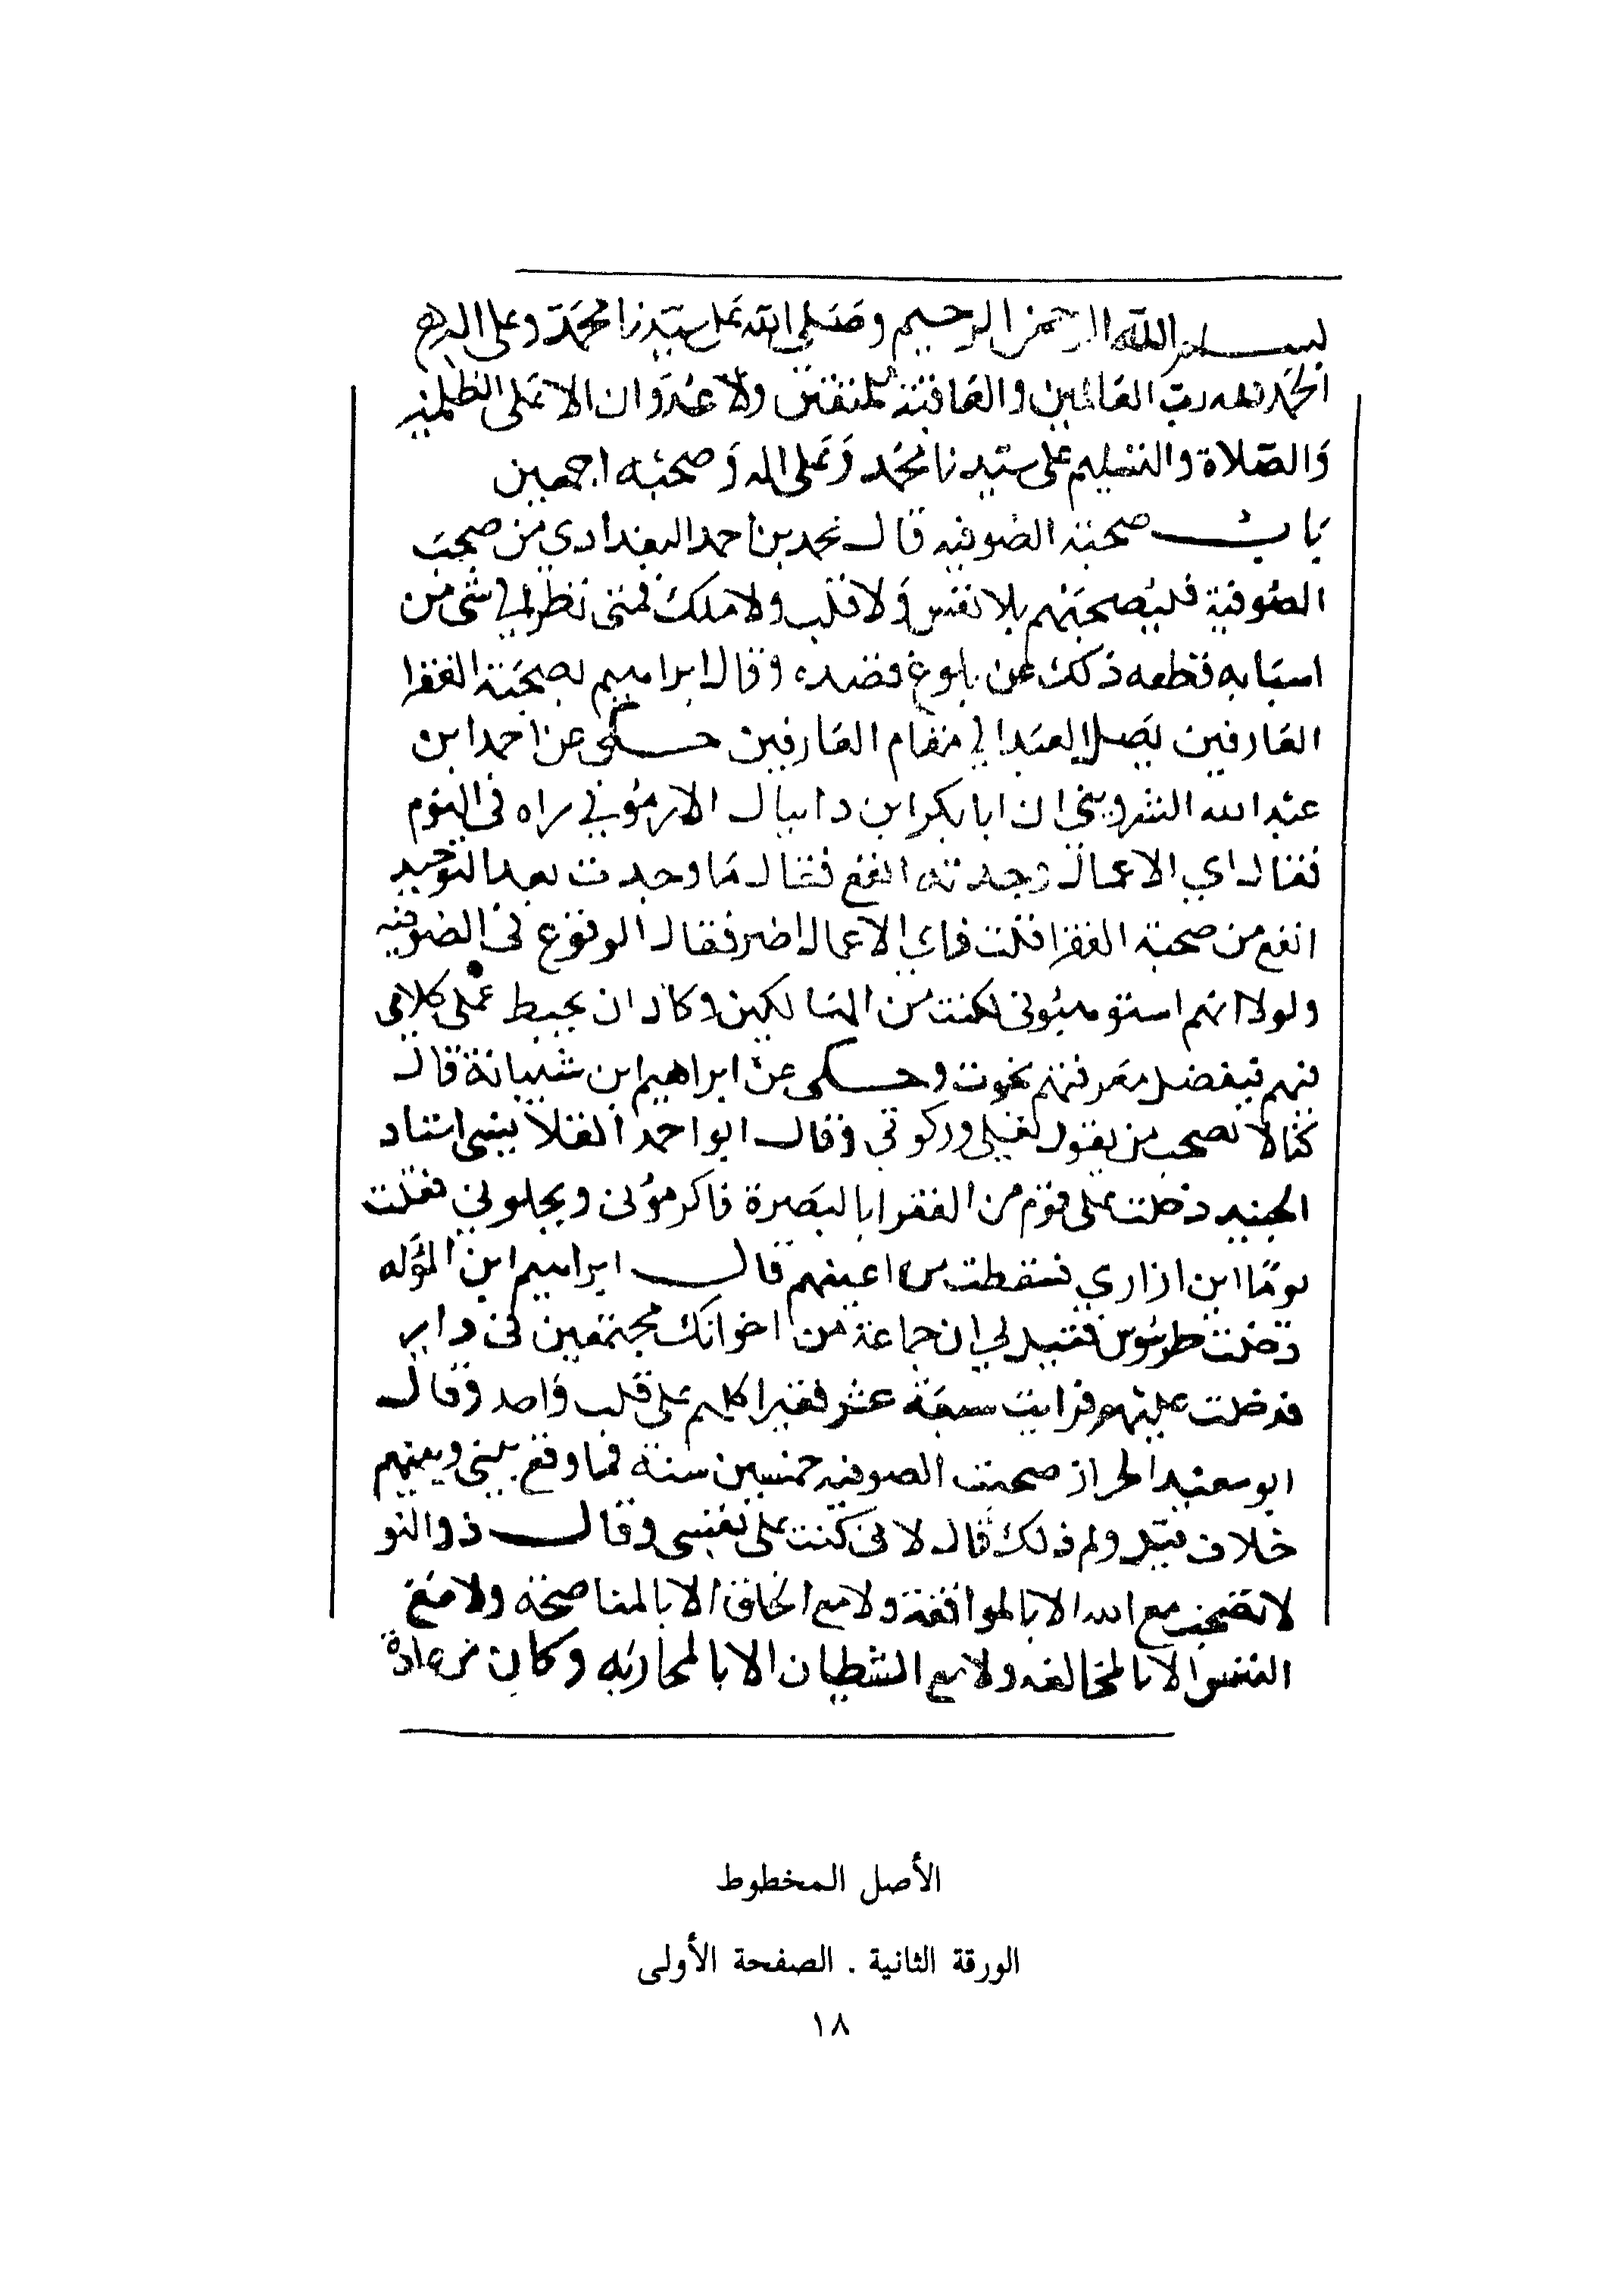 بسم الله الرحمن الرحيم وصلى الله على سيدنا محمد وعلى اله
الحمد لله رب العالمين والعاقبة للمتقين ولا عدوان الا على الظلمين
والصلاة والتسليم على سيدنا محمد وعلى اله وصحبه اجمعين
باب صحبة الصوفيه قال محمد بن احمد البغدادي من صحب
الصوفية فليصحبهم بلا نفس ولا قلب ولا ملك فمتى نظر الى شى من
اسبابه قطعه ذلك عن بلوغ قصده وقال ابراهيم بصحبة الفقرا
العارفين يصل العبد الي مقام العارفين حكى عن احمد ابن
عبد الله الشرويني ان ابا بكر ابن دانيال الارموني راه فى النوم
فقال اي الاعمال وجدته انفع فقال ما وجدت بعد التوحيد
انفع من صحبة الفقرا قلت فاي الاعمال اضر فقال الوقوع فى الصوفيه
ولولا انهم استوهبوني لكنت من الهالكين وكاد ان يحبط عملى كلامى
فيهم فبفضل معرفتهم نجوت وحكى عن ابراهيم ابن شيبانة قال
كنا لا نصحب من يقول نعلي وركوتي وقال ابو احمد القلانسى استاد
الجنيد دخلت على قوم من الفقرا بالبصرة فاكرموني وبجلوني فقلت
يوما اين ازاري فسقطت من اعينهم قال ابراهيم ابن المؤله
دخلت طرسوس فقيل لي ان جماعة من اخوانك مجتمعين فى دار
فدخلت عليهم فرايت سبعة عشر فقيرا كلهم على قلب واحد وقال
ابو سعيد الخراز صحبت الصوفيه خمسين سنة فما وقع بيني وبينهم
خلاف قيل ولم ذلك قال لانى كنت على نفسي وقال ذو النو
لا تصحب مع الله الا بالموافقة ولا مع الخلق الا بالمناصحة ولا مع
النفس الا بالمخالفه ولا مع الشطيان الا بالمحاربه وكان من عادة
الأصل المخطوط
الورقة الثانية . الصفحة الأولى
١٨